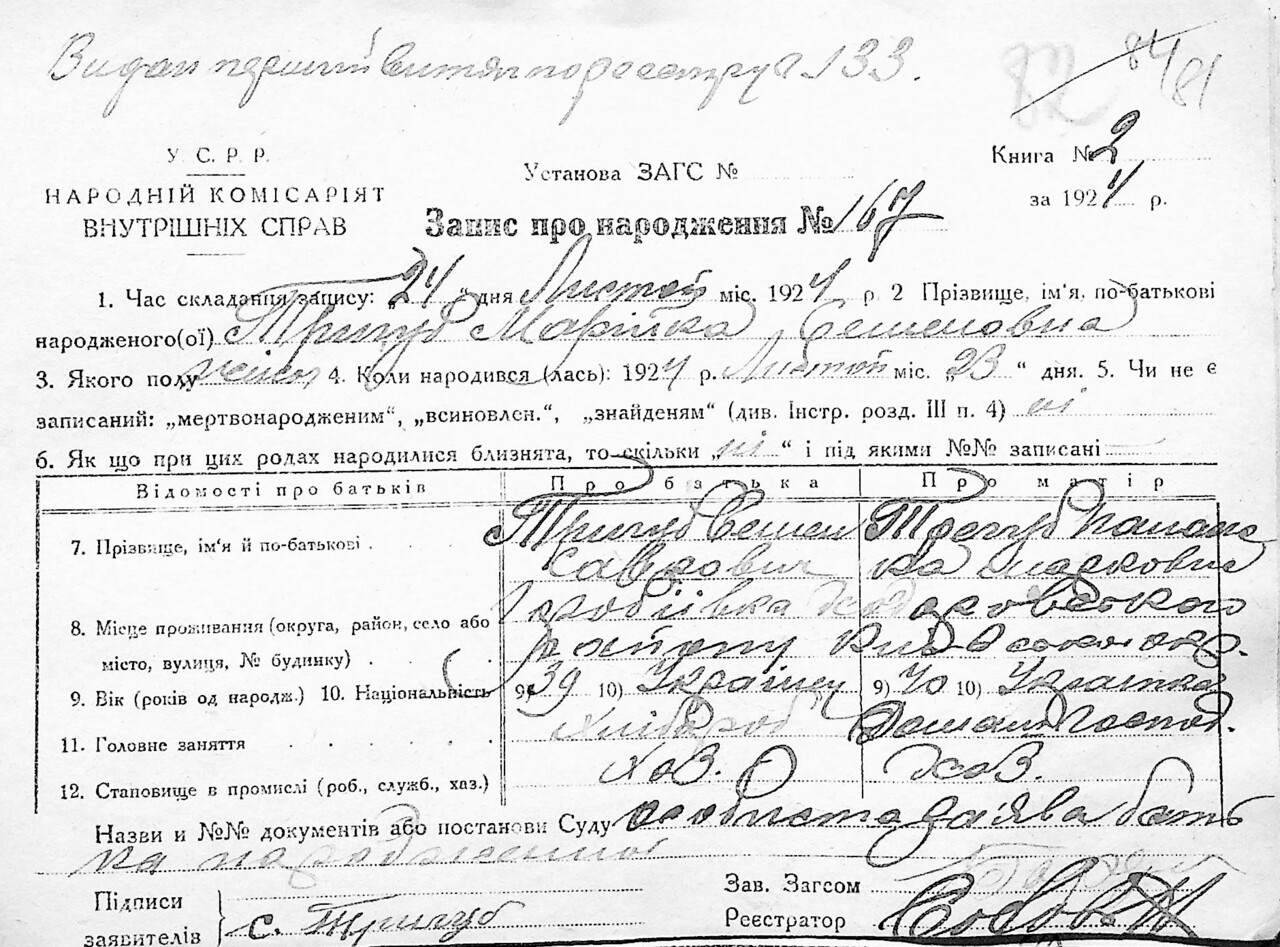 Видан перший витяг по реестру г 133.
84/81
82
У. С. Р. Р.
НАРОДНІЙ КОМІСАРІЯТ
ВНУТРІШНІХ СПРАВ
Установа ЗАГС №
Книга № 2
за 1924 р.
Запис про народження № 167
1. Час складання запису: 24 “ дня Листоп міс. 1924 р 2 Прізвище, ім'я, по-батькові
народженого(ої) Тригуб Марійка Семеновна
3. Якого полу жіноч 4. Коли народився (лась): 1924 р. Листоп міс. „23 “ дня. 5. Чи не є
записаний: „мертвонародженим“, „всиновлен.“, „знайденям“ (див. Інстр. розд. III п. 4) ні
6. Як що при цих родах народилися близнята, то скільки „ні“ і під якими №№ записані
Відомості про батьків Про батька Про матір
7. Прізвище, ім'я й по-батькові Тригуб Семен Савкович Тригуб Палажка Марковна
8. Місце проживання (округа, район, село або
місто, вулиця, № будинку) району
9. Вік (років од народж.) 10. Національність 9) 39 10) Українец 9) 40 10) Українка
11. Головне заняття Хлібороб Домашн господ.
12. Становище в промислі (роб., служб., хаз.) хаз. хаз.
Назви и №№ документів або постанови Суду особиста заява бать
ка народженної
Підписи
заявителів } С. Тригуб
Зав. Загсом
Реєстратор